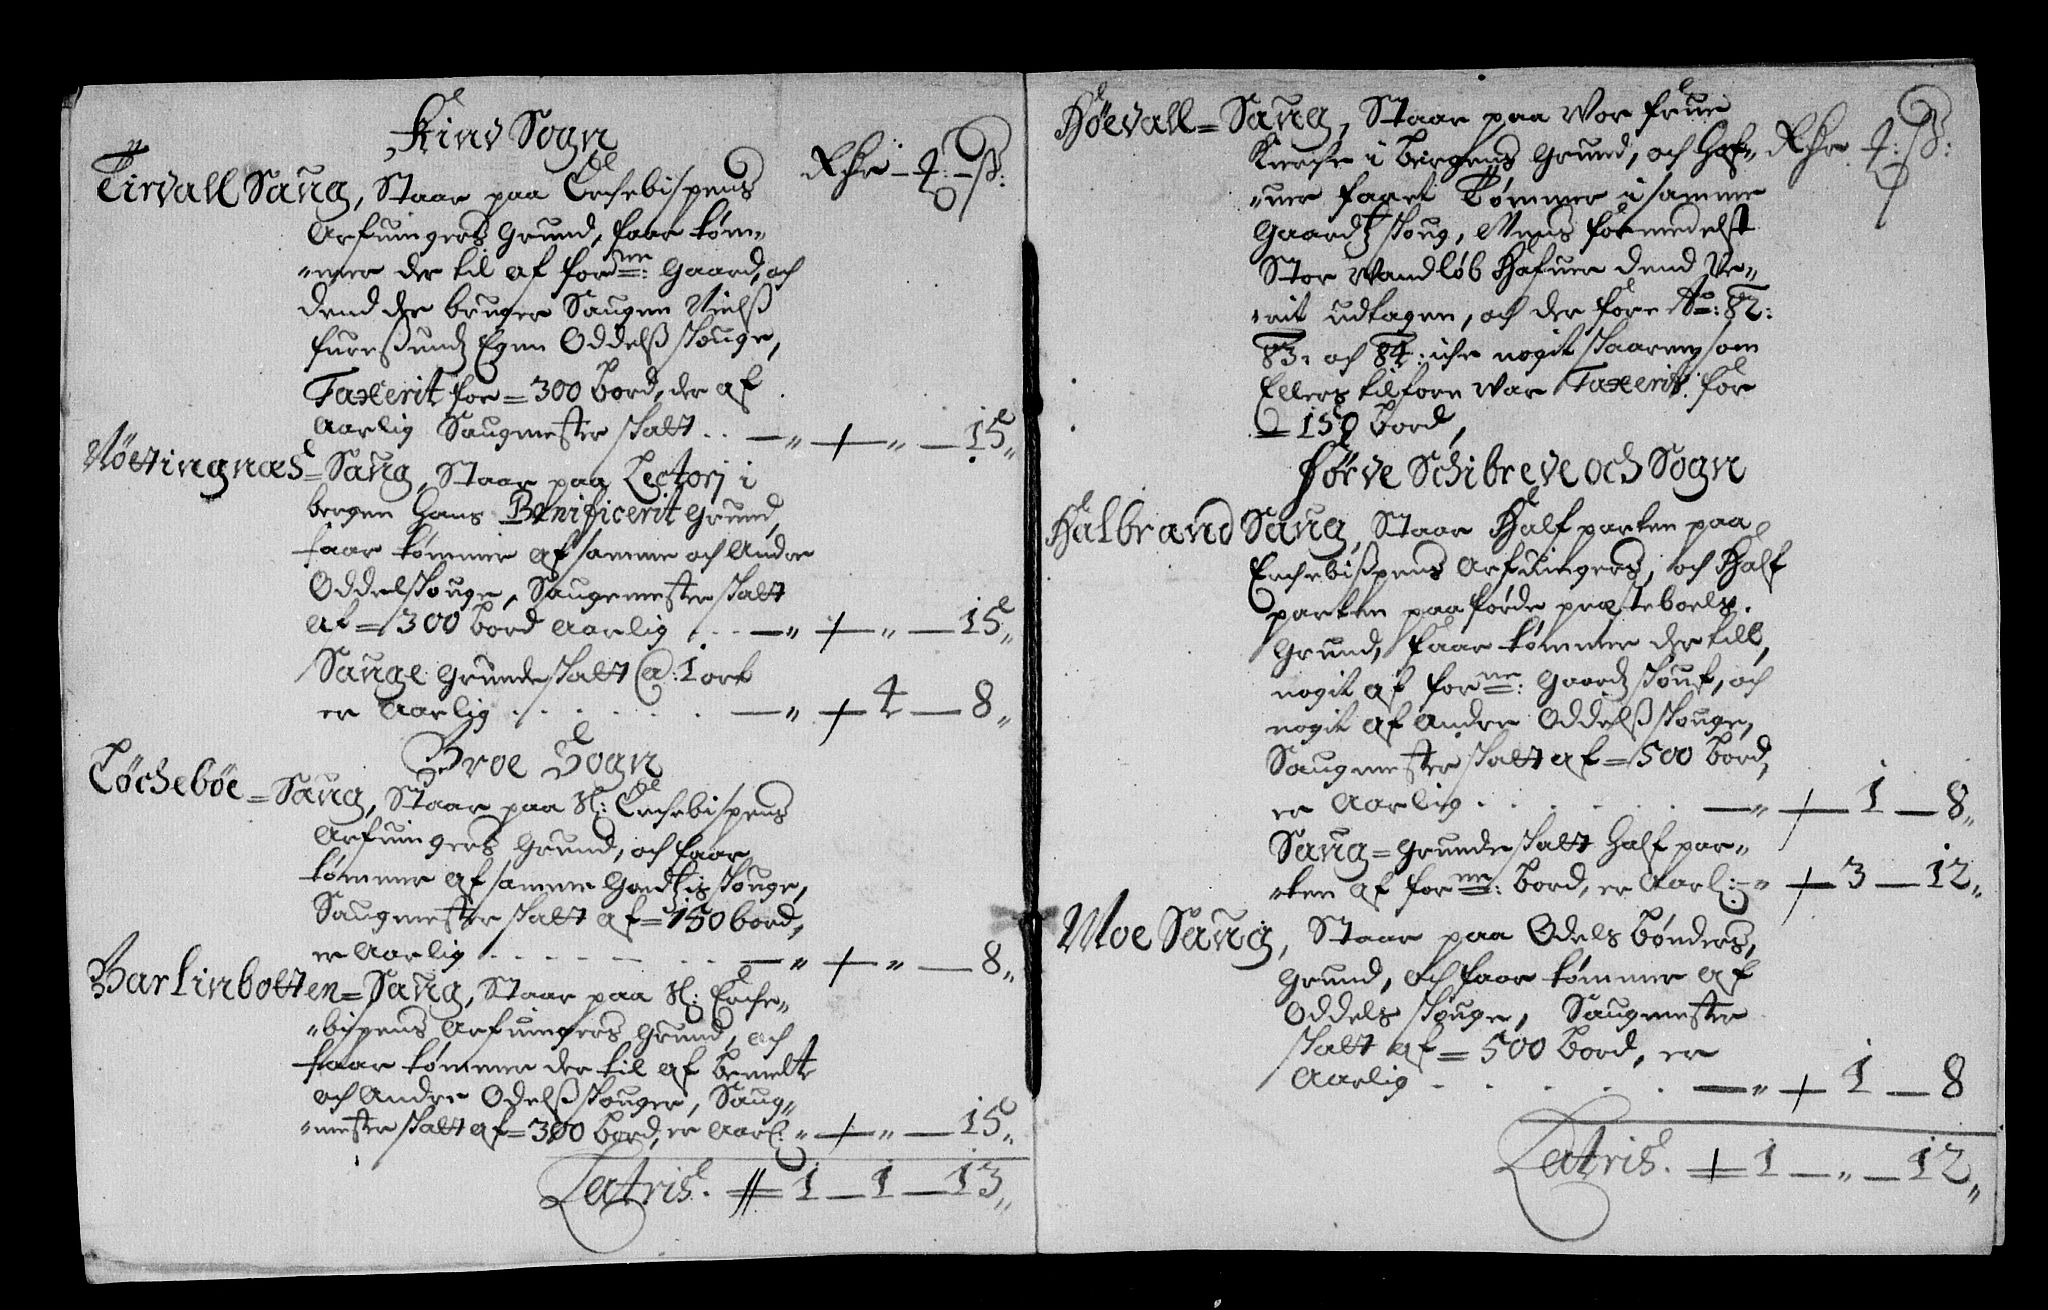 Kind Sogn
Rdr – ℳ: – ß:
Tirvall Saug, Staar paa Erchebispens
Arfuingers Grund, faar tøm-
-mer der til af forne: Gaard, och
dend der bruger Saugen Nielß
Egen Oddelß skouge,
Taxerit for = 300 Bord, der af
Aarlig Saugmester skatt . . — „ + „ — 15 „
Nøttingnæs = Saug, Staar paa Lectorj i
bergen Hans Benificerit Grund,
faar tømmer af samme och Andre
Oddelskouge, Saugemester skatt
af = 300 bord Aarlig . . . — „ + „ — 15 „
Sauge Grundeskatt @: 1 ort
er Aarlig . . . . . — „ + 4 — 8 „
Broe Sogn
Løchebøe = Saug, Staar paa Sl: Erchebispens
Arfuingers Grund, och faar
tømmer af samme Goedtzis skouge,
Saugmester skatt af = 150 bord,
er Aarlig . . . . . . — „ + „ — 8 „
Barlinbotten = Saug, Staar paa Sl: Erche-
-bispens Arfuingers Grund, och
faar tømmer der til af bemelte
och Andre Odelß skouger, Saug-
-mester skatt af = 300 bord, er Aarl: „ + „ — 15 „
Latris. # 1 — 1 — 13 „
Høevall = Saug, Staar paa Vor frue
Kirche i bergens Grund, och Haf- Rdr ℳ: ß:
-uer faaet Tømmer i samme
Gaardtz skoug, Mens formedelst
Stor Vandløb Hafuer dend Ve-
-rit udtagen, och der fore Ao: 82:
83: och 84: iche nogit skaaren som
Ellers tilforn Var Taxerit for
= 150 Bord,
Førde Schibrede och Sogn
Halbrand Saug, Staar Half parten paa
Erchebißpens Arfuingers, och Half
parten paa førde præsteboels
Grund, faar tømmer der till,
nogit af forne: Gaardz skouf, och
nogit af Andre Oddelß skouge,
Saugmester skatt af = 500 bord,
er Aarlig . . . . . . — „ + 1 — 8 „
Saug = Grundeskatt Half par-
-ten af forne: bord, er Aarl: — „ + 3 — 12 „
Moe Saug, Staar paa Odels bønders,
Grund, och faar tømmer af
Oddels skouge, Saugmester
skatt af = 500 bord, er
Aarlig . . . . . . — „ + 1 — 8
Latris. + 1 — „ — 12 „